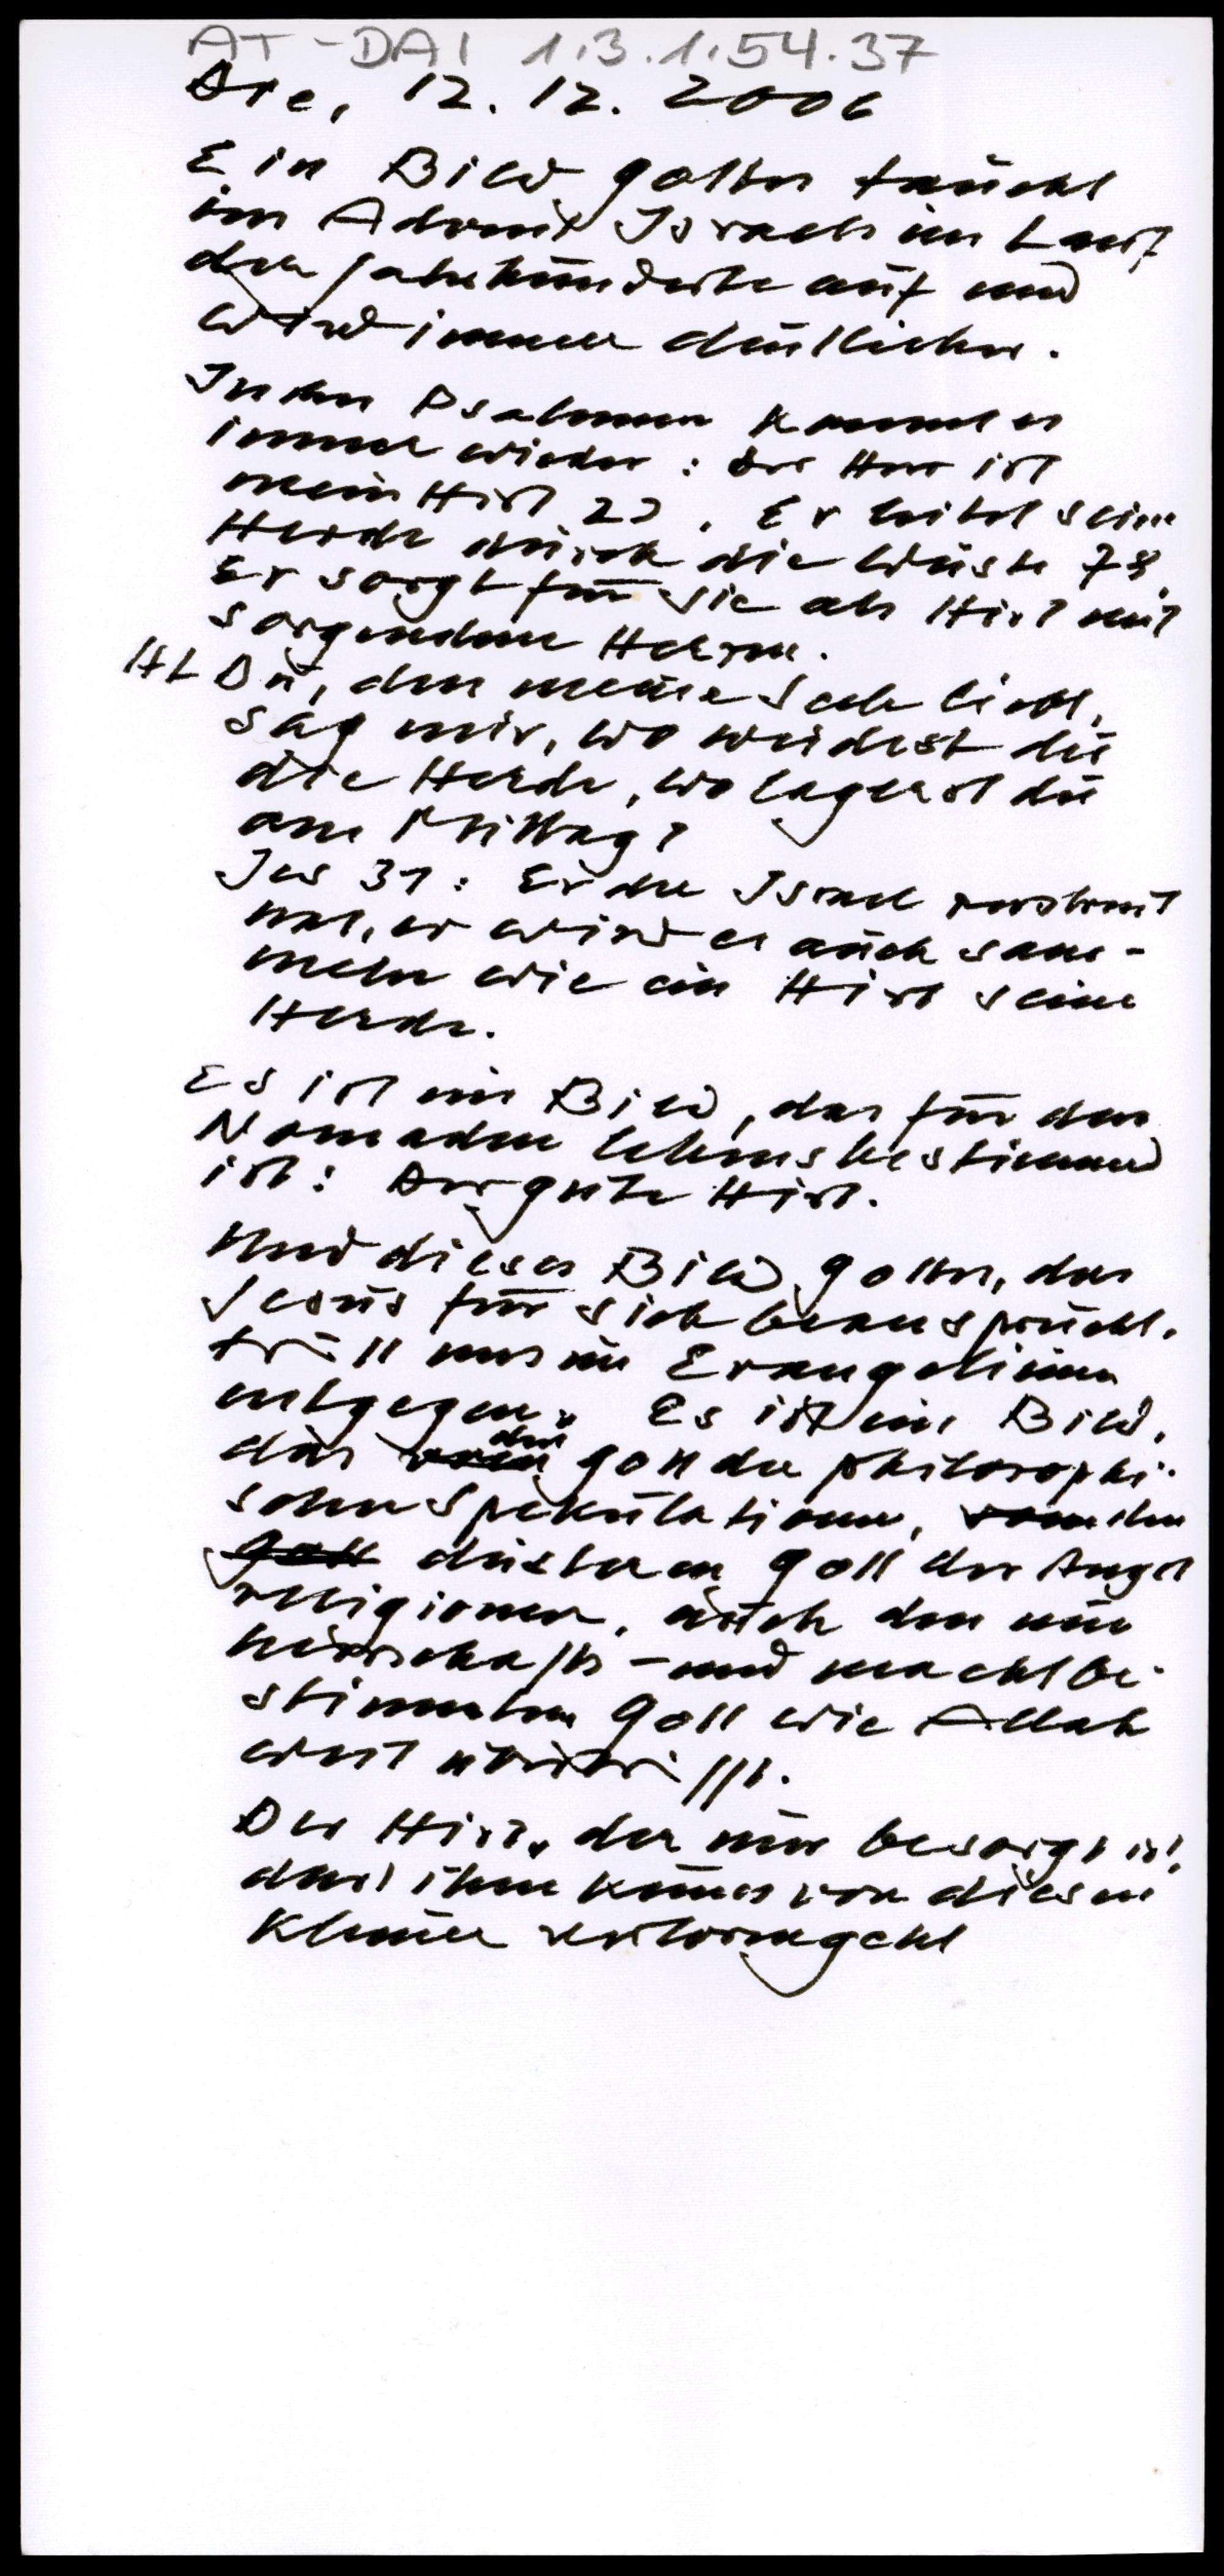 AT-DAI 1.3.1.54.37
Die, 12. 12. 2006
Ein Bild Gottes taucht
im Advent Israels im Lauf
der Jahrhunderte auf und
wird immer deutlicher.
In den Psalmen kommt es
immer wieder: Der Herr ist
mein Hirt 23. Er leitet seine
Herde durch die Wüste 78.
Er sorgt für sie als Hirt mit
sorgendem Herzen.
HL Du, den meine Seele liebt,
sag mir, wo weidest du
die Herde, wo lagerst du
am Mittag?
Jes 31: Er der Israel zerstreut
hat, er wird es auch sam-
meln wie ein Hirt seine
Herde.
Es ist ein Bild, das für den
Nomaden lebensbestimmend
ist: Der gute Hirt.
Und dieses Bild Gottes, das
Jesus für sich beansprucht,
tritt uns im Evangelium
entgegen. Es ist ein Bild,
das den Gott der philosophi-
schen Spekulationen, den
Gott düsteren Gott der Angst
religionen, auch den nur
herrschafts- und machtbe-
stimmten Gott wie Allah
weit übertrifft.
Der Hirt, der nur besorgt ist,
dass ihm keines von diesen
Kleinen verlorengeht